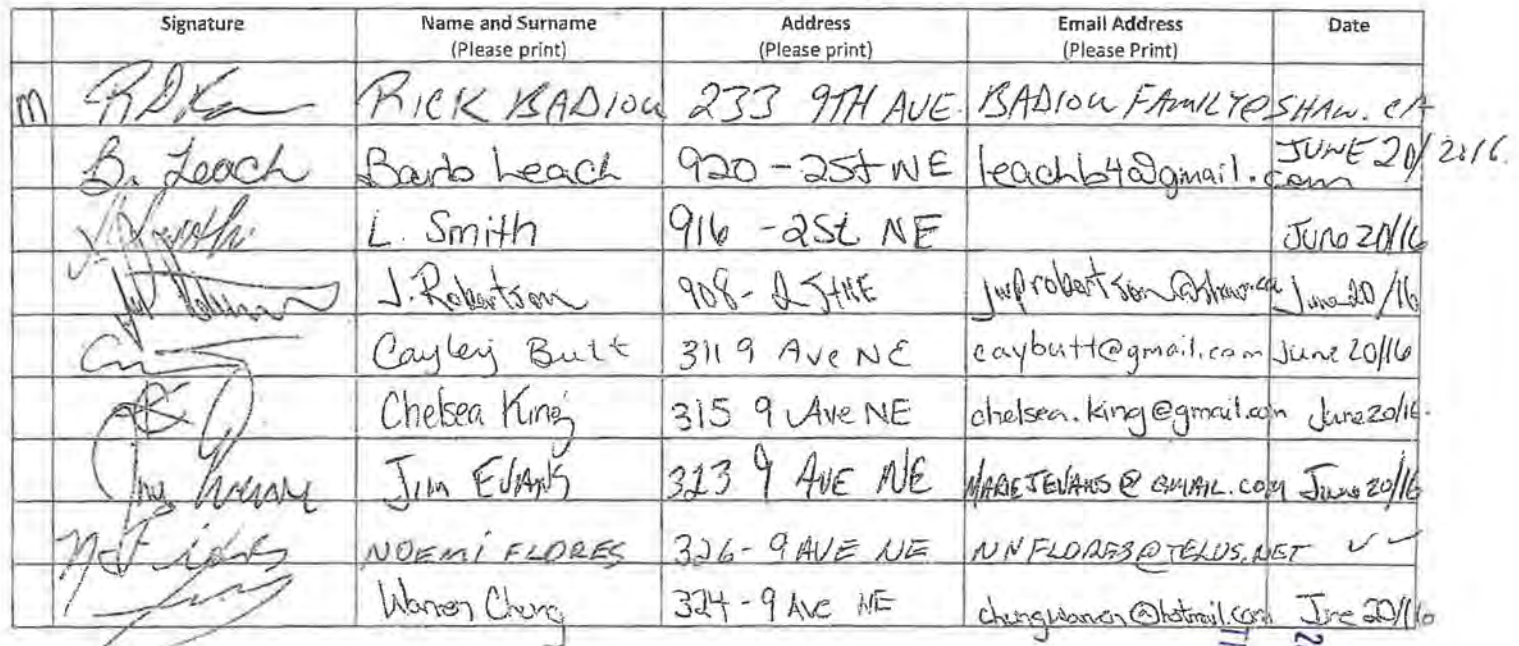 Signature Name and Surname Address Email Address Date
(Please print) (Please print) (Please Print)
m RICK BADIOU 233 9TH AVE. BADIOU FAMILY@SHAW.CA
B. Leach Barb Leach 920 - 2St NE leachb4@gmail.com JUNE 20/2016.
L. Smith 916 - 2St NE June 20/16
J. Robertson 908 - 2 St NE jwprobertson@shaw.ca June 20/16
Cayley Butt 311 9 Ave NE caybutt@gmail.com June 20/16
Chelsea King 315 9 Ave NE chelsea.king@gmail.com June 20/16.
Jim EVANS 323 9 AVE NE MARIEJEVANS@GMAIL.COM June 20/16
NOEMI FLORES 326 - 9 AVE NE NNFLORES@TELUS.NET ✓ ✓
Warren Chung 324 - 9 Ave NE chungwarren@hotmail.com June 20/16